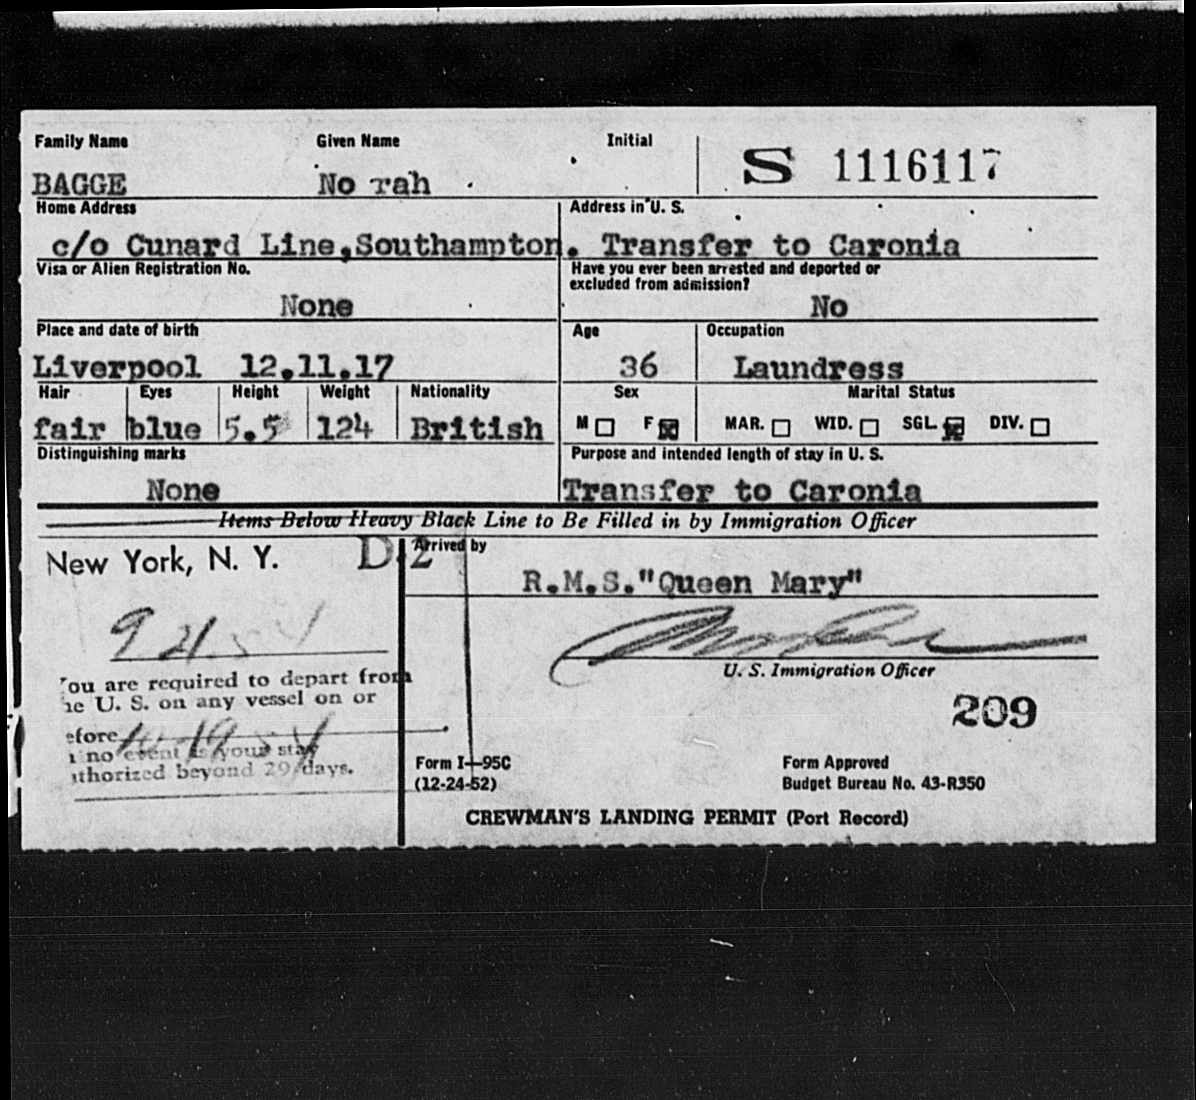 Family Name Given Name Initial
BAGGE No rah S 1116117
Home Address Address in U. S.
c/o Cunard Line,Southampton. Transfer to Caronia
Visa or Alien Registration No. Have you ever been arrested and deported or
excluded from admission?
None No
Place and date of birth Age Occupation
Liverpool 12.11.17 36 Laundress
Hair Eyes Height Weight Nationality Sex Marital Status
fair blue 5.5 124 British M F MAR. WID. SGL. DIV.
Distinguishing marks Purpose and intended length of stay in U. S.
None Transfer to Caronia
Items Below Heavy Black Line to Be Filled in by Immigration Officer
New York, N. Y. D-2 Arrived by
R.M.S."Queen Mary"
9 21 54
U. S. Immigration Officer
ou are required to depart from
he U. S. on any vessel on or
209
efore 10-19-54
n no event is your stay
uthorized beyond 29 days.
Form I-95C Form Approved
(12-24-52) Budget Bureau No. 43-R350
CREWMAN'S LANDING PERMIT (Port Record)